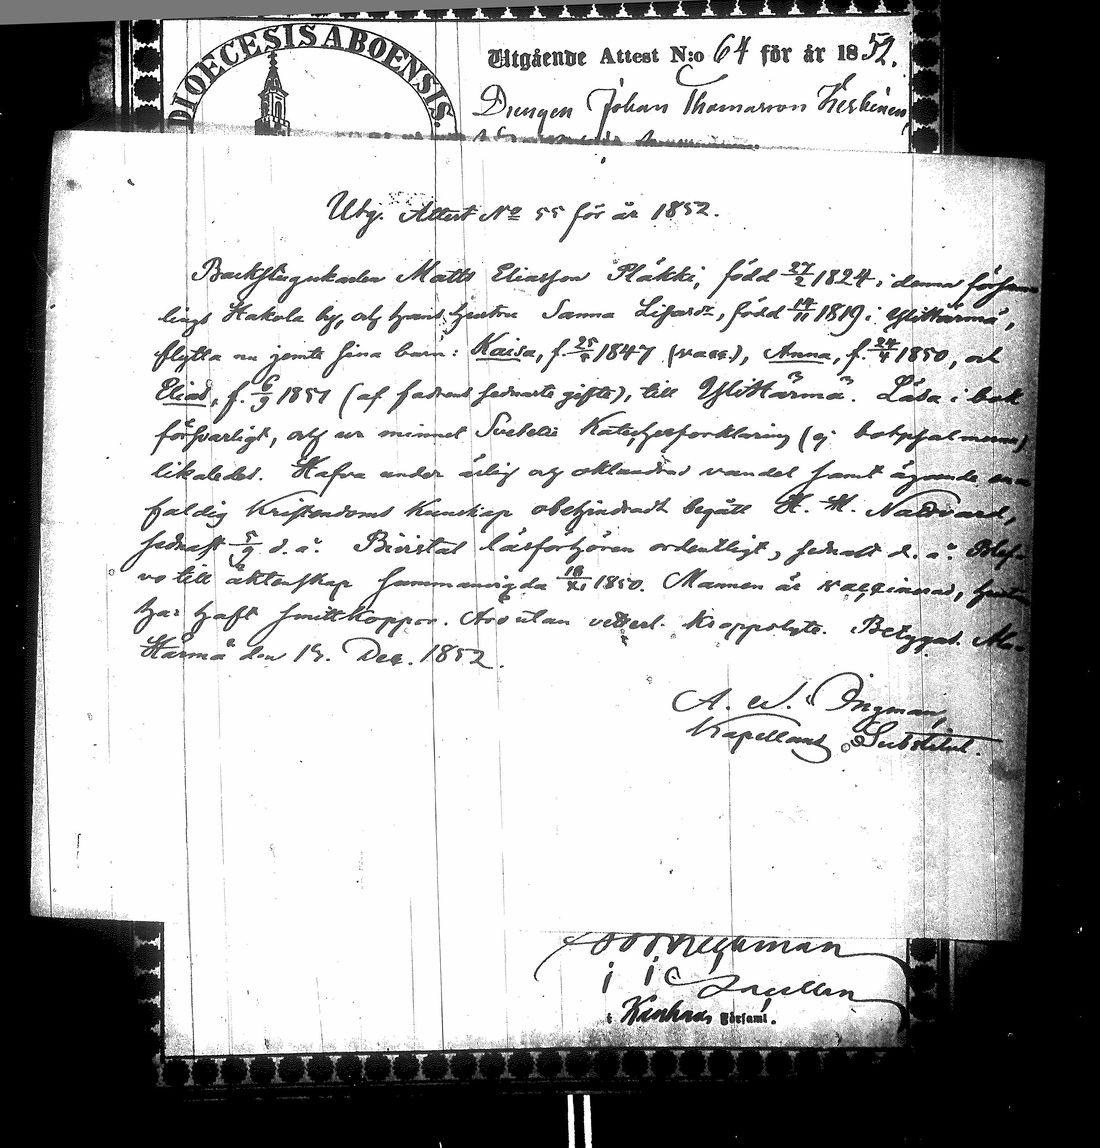 DIOECESIS ABOENSIS.
Utgående Attest N:o 64 för år 1852.
Drengen Johan Thomasson Keskinen,
Utg. Attest No 55 för år 1852.
Backstugukarlen Matts Eliasson Pläkki, född 27/2 1824 i denna försam
lings Hakola by, och hans hustru Sanna Lisa dr, född 14/11 1819 i YliHärmä,
flytta nu jemte sina barn: Kaisa, f. 25/ 1847 (vacc.), Anna, f. 24/4 1850, och
Elias, f. 6/9 1851 (af fadrens sednaste gifte), till YliHärmä. Läsa i bok
försvarligt, och ur minnet Svebelii Katechesförklaring (ej botpsalmerna)
likaledes. Hafva under ärlig och oklandrad vandel samt ägande en
faldig Kristendoms Kunskap obehindradt begått H. H. Nattvard,
sednast 5/9 d. å. Bivistat läsförhören ordentligt, sednast d. å.
vo till äktenskap sammanvigda 18/XI 1850. Mannen är vaccinerad, hustrun
har haft smittkoppor. Äro utan vetterl. kroppslyte. Betygad.
Härmä den 19. Dec. 1852.
A. W. Ingman,
Kapellans Substitut.
i Kauhava Församl.